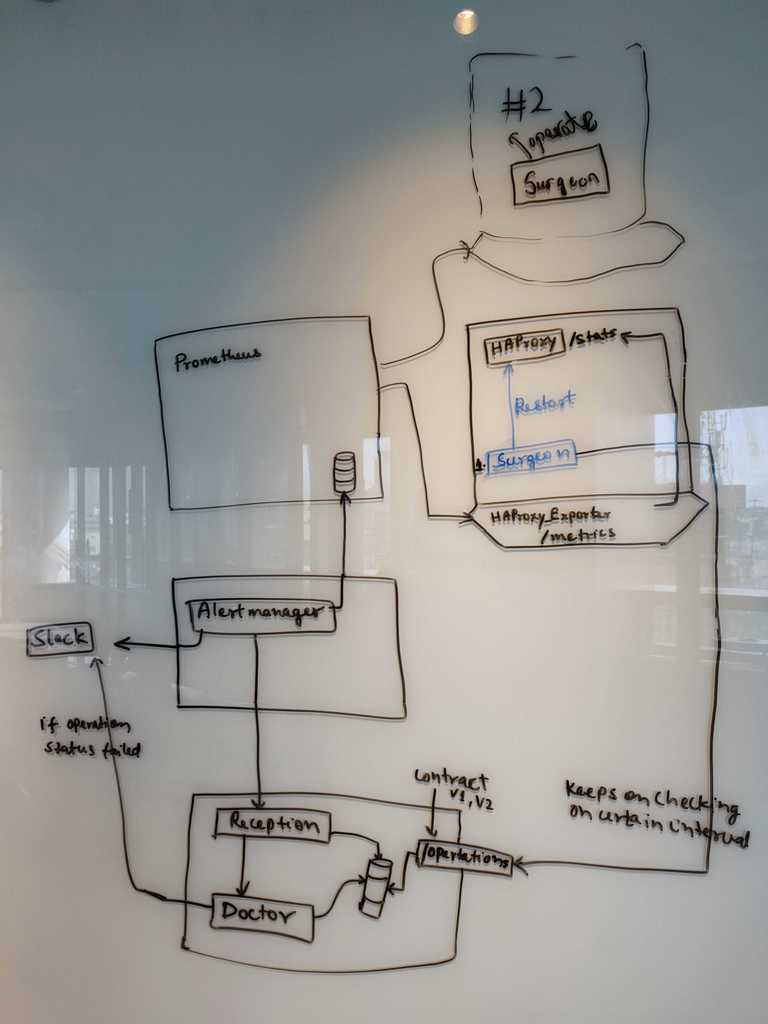 #2
Separate
Surgeon
Prometheus
HAProxy /stats
Restart
1. Surgeon
HAProxy_Exporter
/metrics
Alertmanager
Slack
if operation
status failed
Contract
V1, V2
Keeps on checking
on certain interval
Reception
/opertations
Doctor